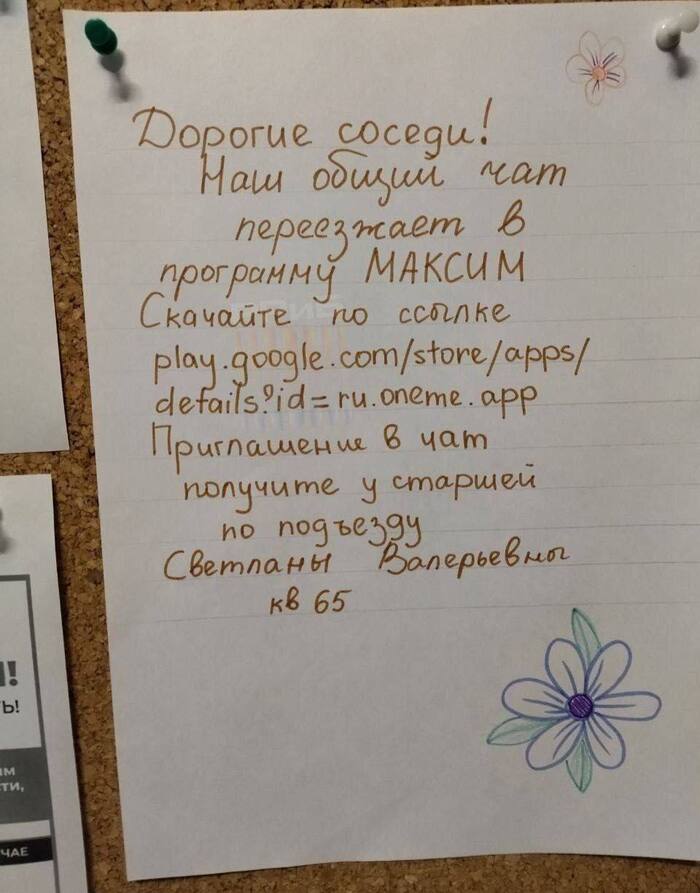 Дорогие соседи!
Наш общий чат
переезжает в
программу МАКСИМ
Скачайте по ссылке
play.google.com/store/apps/
details?id=ru.oneme.app
Приглашение в чат
получите у старшей
по подъезду
Светланы Валерьевны
кв 65
!
Ь!
ЫМ
ТИ,
ЧАЕ